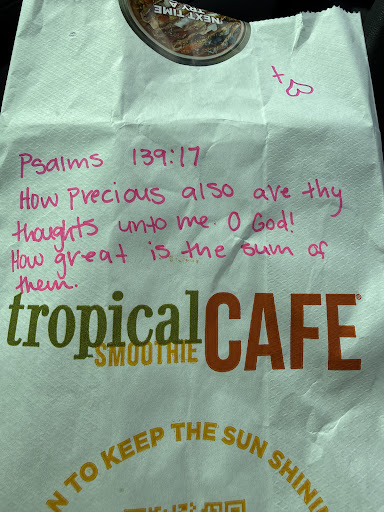 NEXT TIME
TRY A
Psalms 139:17
How precious also are thy
thoughts unto me. O God!
How great is the sum of
them.
tropical CAFE®
SMOOTHIE
N TO KEEP THE SUN SHINI